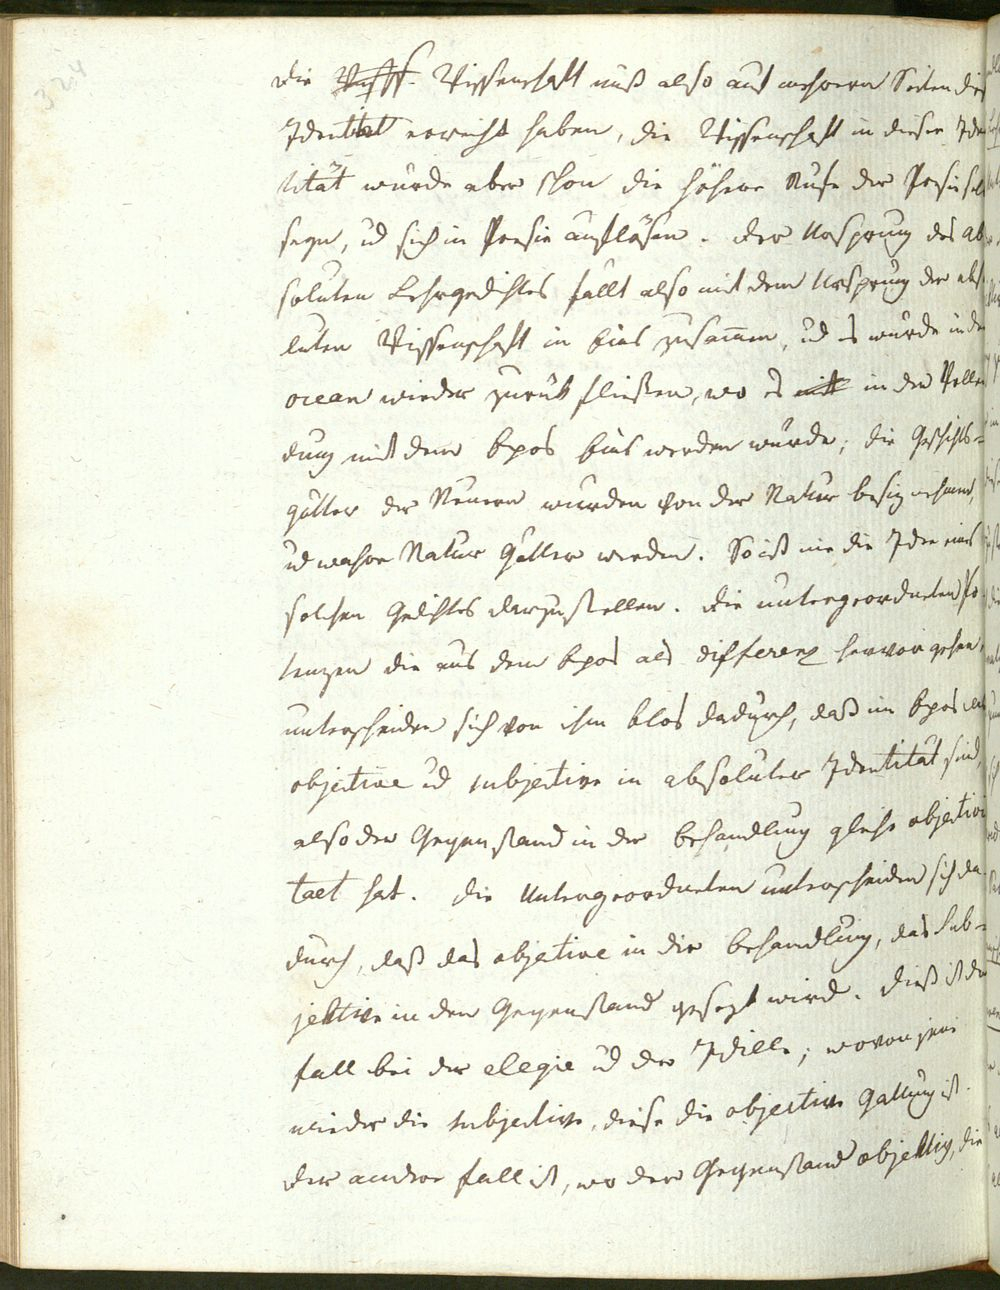 324
die Wissenschaft muß also aus mehrern Seiten die
Identitet erreicht haben, die Wissenschaft in dieser Iden
titát wurde aber schon die höhere Stufe der Poesie selb
seyn, ud sich in Poesie auflösen. Der Ursprung des ab
soluten Lehrgedichtes fällt also mit dem Ursprung der abso
luten Wissenschaft in Eins zusam̄en, ud es wurde in den
ocean wieder zurük fließen, wo es mitt in der Vollen
dung mit dem Epos Eins werden würde; die Geschichts-
götter der Neuern wurden von der Natur besiz nehmen,
ud wahre Natur Götter werden. So ist nie die Idee eines
solchen Gedichtes darzustellen. Die untergeordneten Po
tenzen die aus dem Epos als differenz hervor gehen,
unterscheiden sich von ihm blos dadurch, daß im Epos das
objective ud subjective in absoluter Identität sind,
also der Gegenstand in der behandlung gleiche objectivi
taet hat. Die Untergeordneten unterscheiden sich da
durch, daß das objective in die behandlung, das Sub-
jektive in den Gegenstand gesezt wird. Dieß ist der
fall bei der elegie ud der Idille; wovon jene
wieder die subjective, diese die objective Gattung ist.
Der andere fall ist, wo der Gegenstand objektiv, die